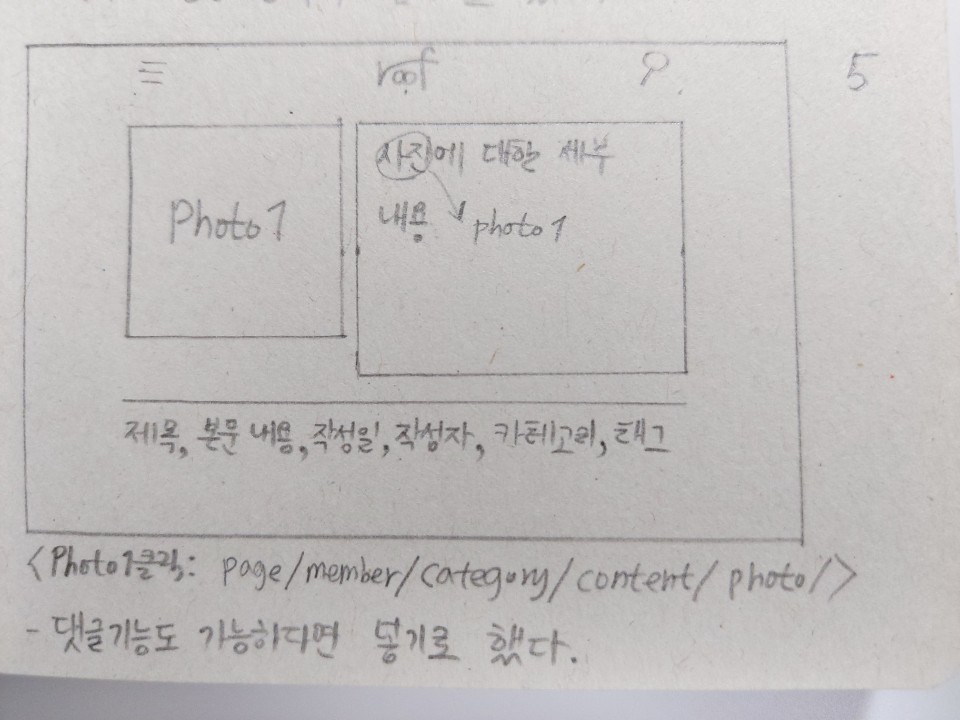 roof
5
Photo 1
사진에 대한 세부
내용
photo 1
제목, 본문 내용, 작성일, 작성자, 카테고리, 태그
<Photo1클릭: page/member/category/content/photo/>
- 댓글기능도 가능하다면 넣기로 했다.